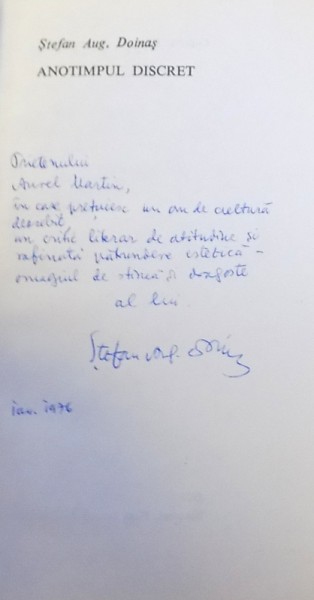 Ștefan Aug. Doinaș
ANOTIMPUL DISCRET
Prietenului
Aurel Martin,
în care prețuiesc un om de cultură
deosebit,
un critic literar de atitudine și
rafinată pătrundere estetică –
omagiul de stimă și dragoste
al lui
Ștefan Aug. Doinaș
ian. 1976